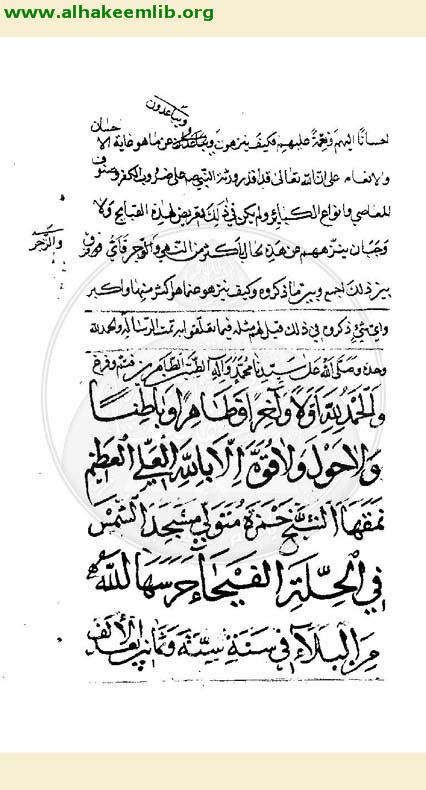 www.alhakeemlib.org
ويباعدون
احسانًا اليهم ونعمة عليهم فكيف ينزهون ويباعدون عن ما هو غاية الاحسان
والانعام على ان الله تعالى قد اقدر ورتبة النبي على ضروب الكفر وصنوف
المعاصي وانواع الكبائر ولم يكن في ذلك تعريض لهذه القبايح ولا
وجب ان ينزههم عن هذه الحال باكثر من النهي والزجر فأي فرق
والزجر
بين ذلك اجمع وبين ما ذكروه وكيف ينزهو عما هو اكثر منها واكبر
واي شيء ذكروه في ذلك قيل لهم مثله فيما تعلقوا به تمت الرسالة والحمد لله
وحده وصلى الله على سيدنا محمد وآله الطيبين الطاهرين فتم وفرغ
والحمد لله اولًا وآخرًا وظاهرًا وباطنًا
ولاحول ولاقوة الا بالله العلي العظيم
نمقها الشيخ حمزة متولي مسجد الشمس
في الحلة الفيحاء حرسها الله
من البلاء في سنة ستة وثمانين بعد الألف